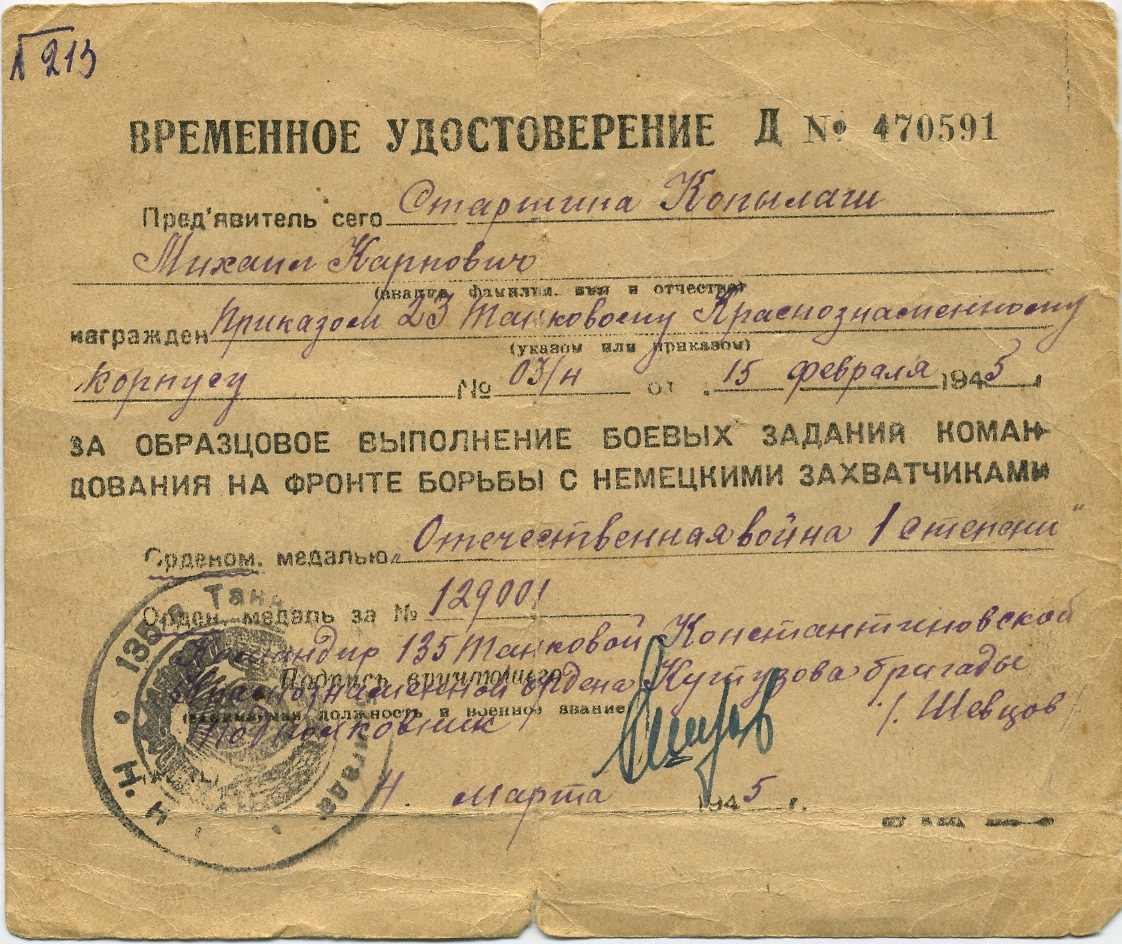 213
ВРЕМЕННОЕ УДОСТОВЕРЕНИЕ Д № 470591
Пред'явитель сего Старшина Копылаш
Михаил Карпович
(звание, фамилия, имя и отчество)
награжден Приказом 23 Танковому Краснознаменному
(указом или приказом)
корпусу № 03/н от 15 февраля 1945 г.
ЗА ОБРАЗЦОВОЕ ВЫПОЛНЕНИЕ БОЕВЫХ ЗАДАНИЙ КОМАН-
ДОВАНИЯ НА ФРОНТЕ БОРЬБЫ С НЕМЕЦКИМИ ЗАХВАТЧИКАМИ
Орденом, медалью „Отечественная война 1 степени"
Орден, медаль за № 129001
Командир 135 Танковой Константиновской
Подпись вручающего
Краснознаменной ордена Кутузова бригады
(занимаемая должность и военное звание)
Подполковник /Шевцов/
4 Марта 1945 г.
135-я Танк бригада Н. К